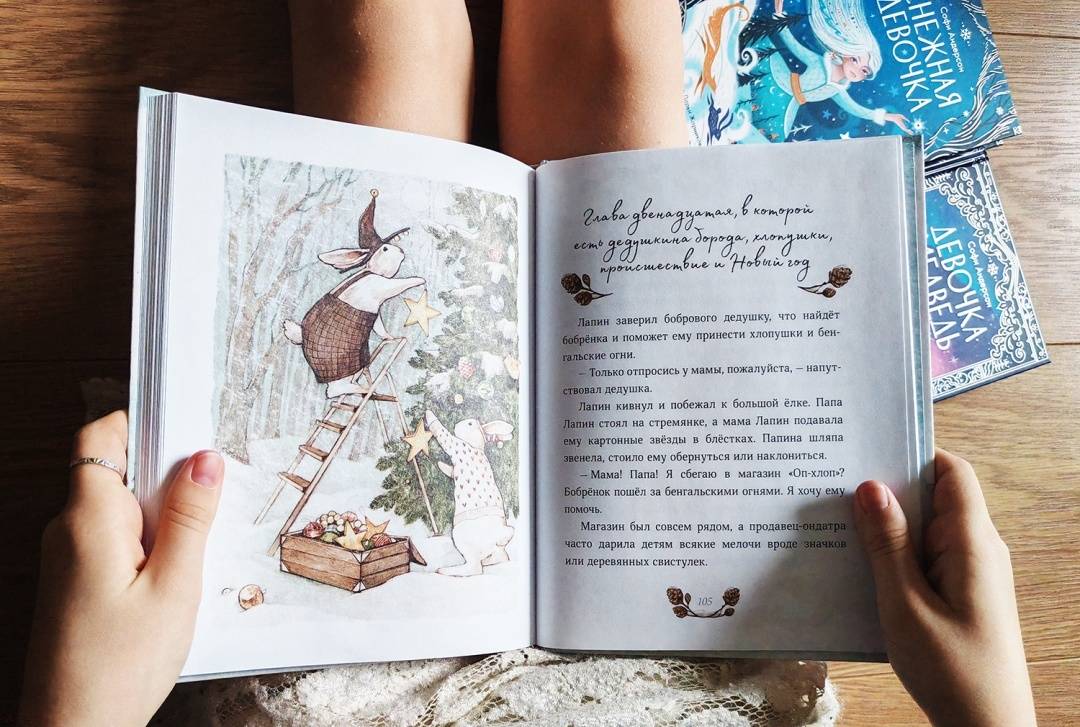 Глава двенадцатая, в которой
есть дедушкина борода, хлопушки,
происшествие и Новый год
Лапин заверил бобрового дедушку, что найдёт
бобрёнка и поможет ему принести хлопушки и бен-
гальские огни.
— Только отпросись у мамы, пожалуйста, — напут-
ствовал дедушка.
Лапин кивнул и побежал к большой ёлке. Папа
Лапин стоял на стремянке, а мама Лапин подавала
ему картонные звёзды в блёстках. Папина шляпа
звенела, стоило ему обернуться или наклониться.
— Мама! Папа! Я сбегаю в магазин «Оп-хлоп»?
Бобрёнок пошёл за бенгальскими огнями. Я хочу ему
помочь.
Магазин был совсем рядом, а продавец-ондатра
часто дарила детям всякие мелочи вроде значков
или деревянных свистулек.
105
Софи Андерсон
НЕЖНАЯ
ДЕВОЧКА
Софи Андерсон
ДЕВОЧКА,
ЕДВЕДЬ